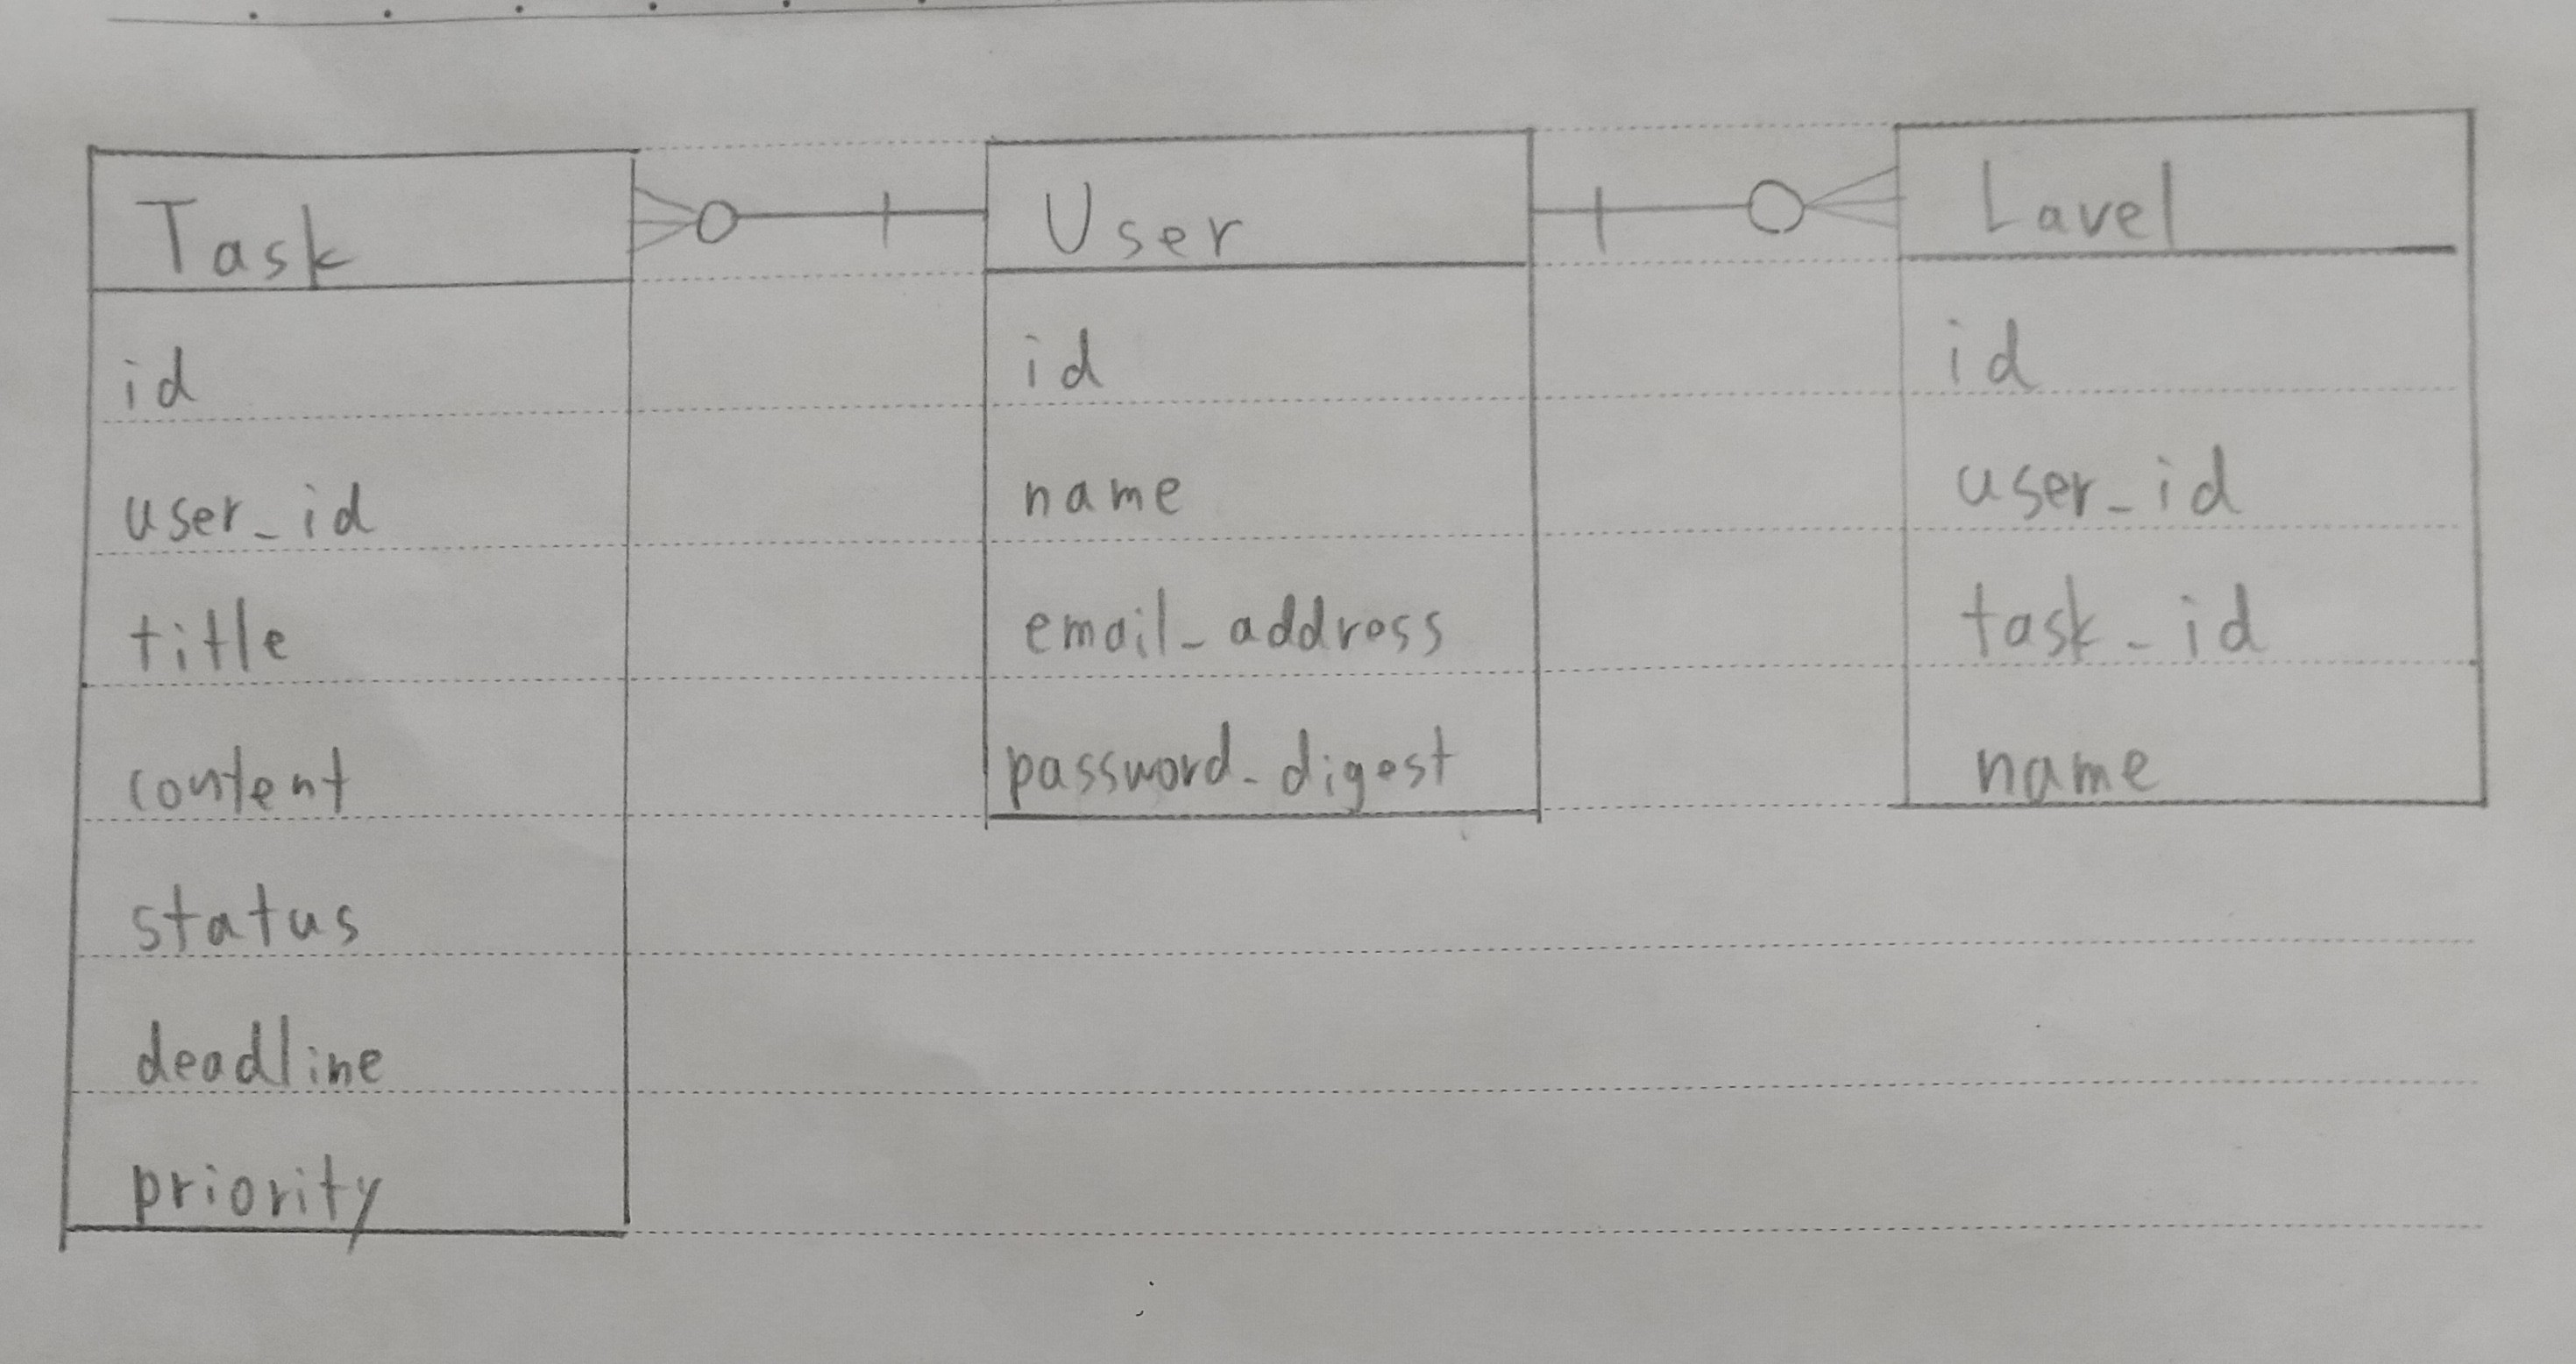 Task
id
user_id
title
content
status
deadline
priority
User
id
name
email_address
password_digest
Lavel
id
user_id
task_id
name